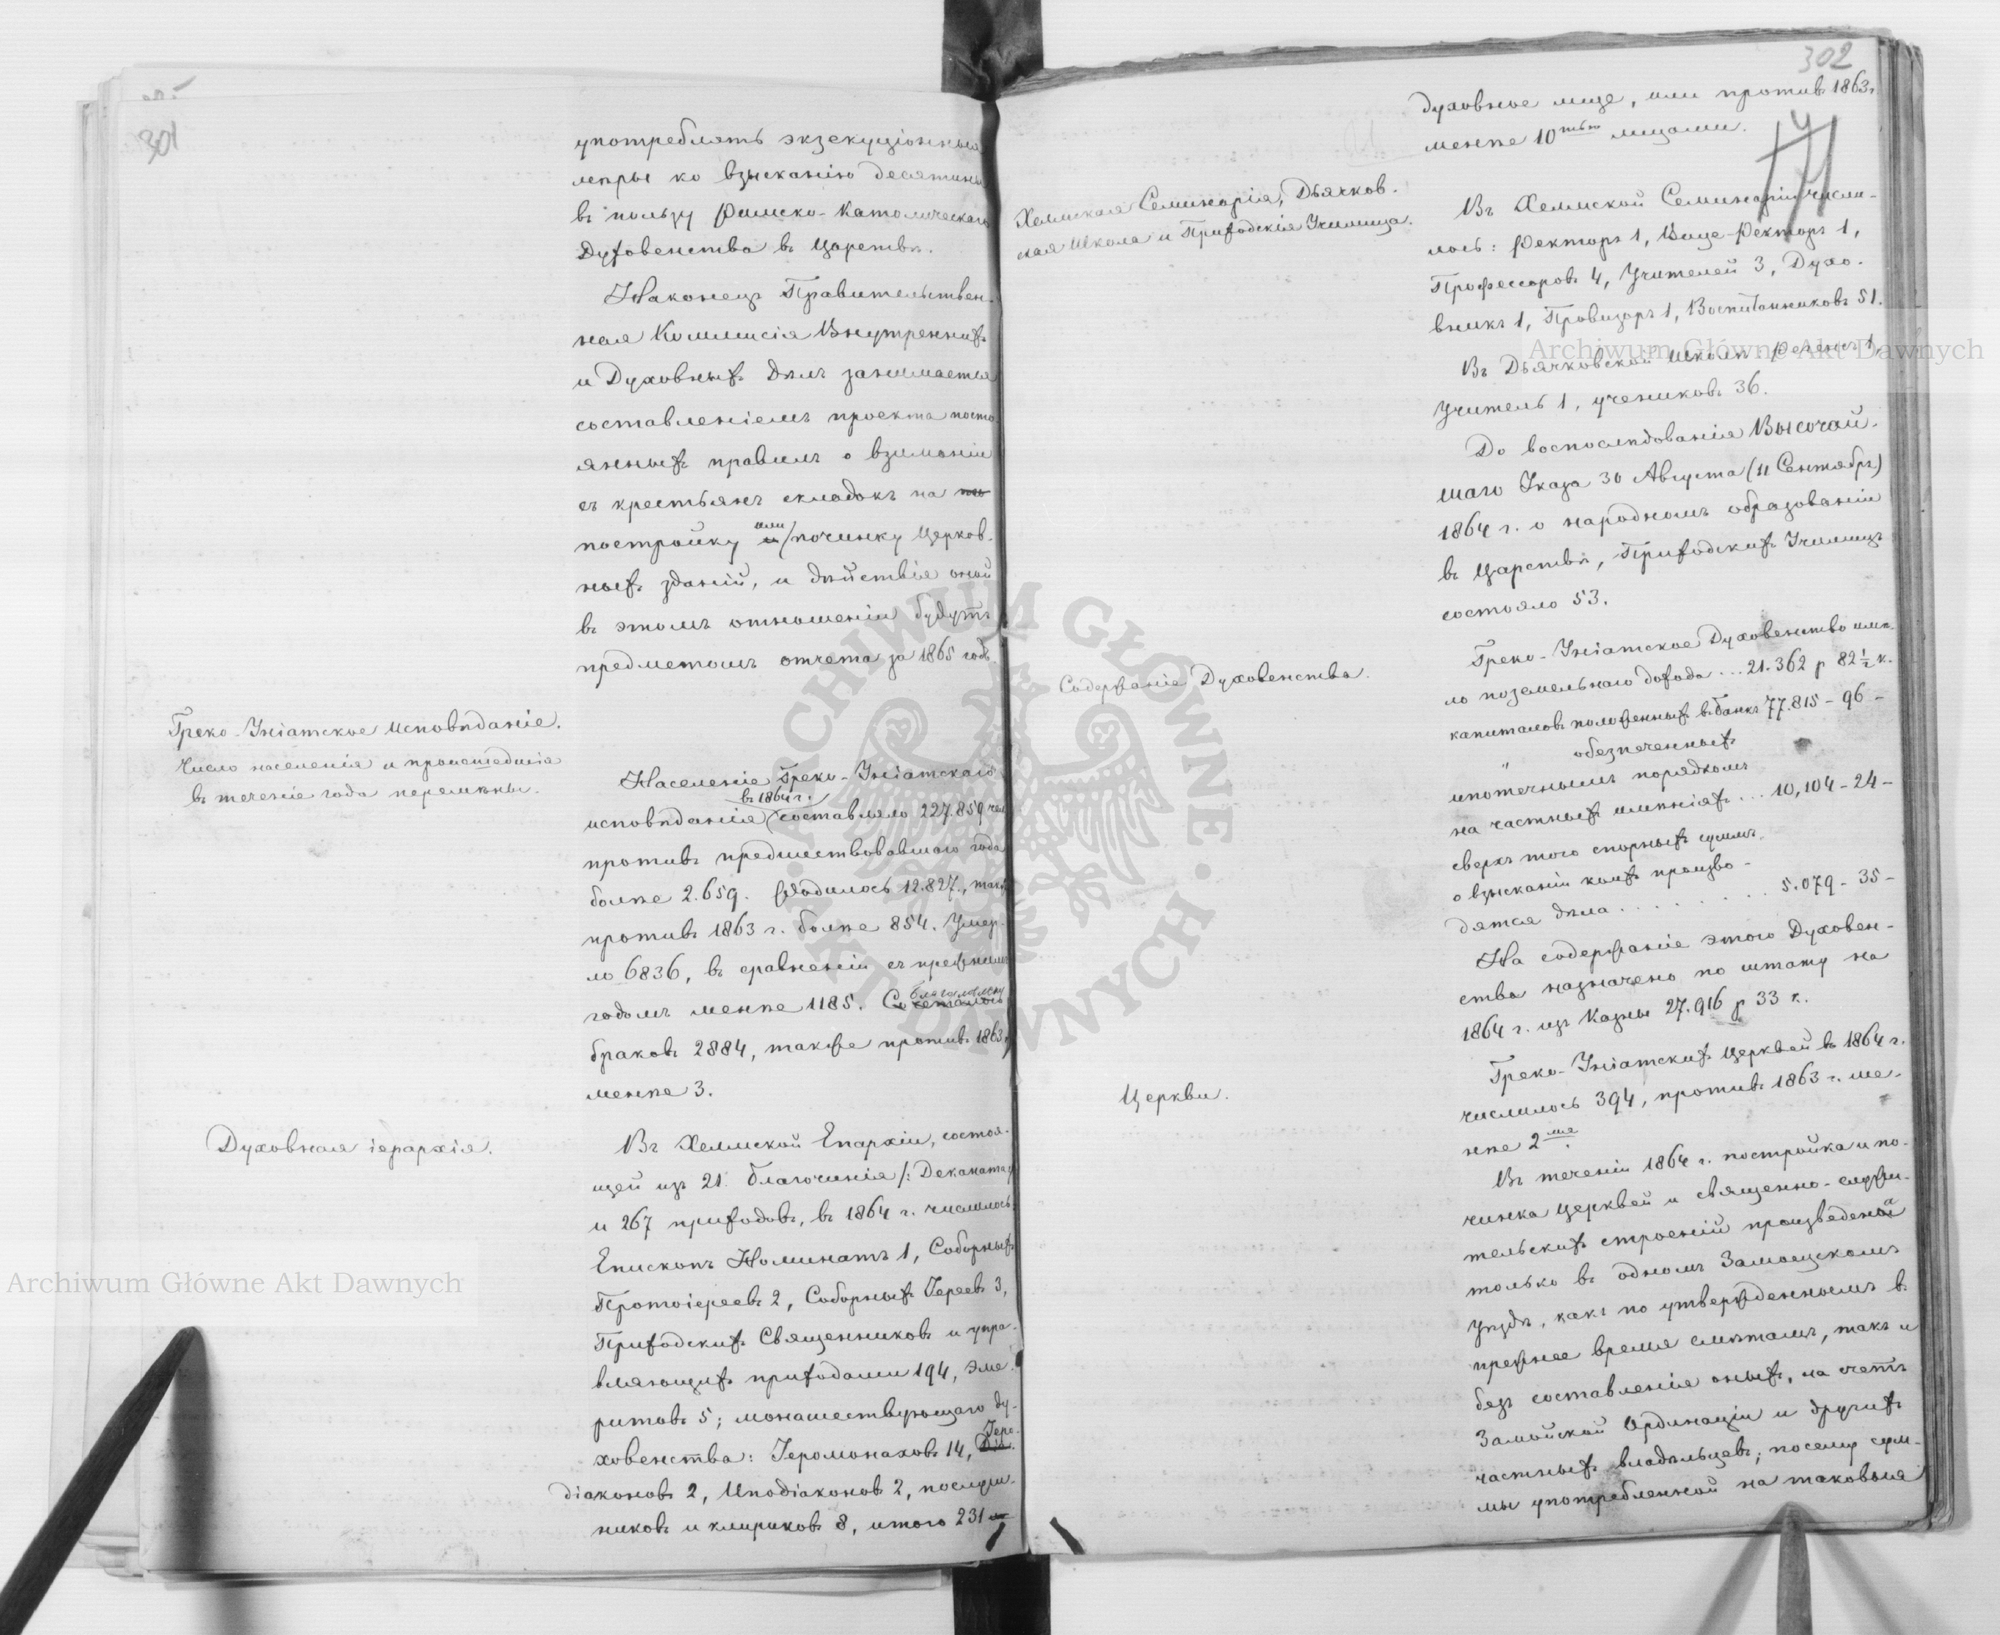 301
употреблять экзекуціонныя
мѣры ко взысканію десятины
въ пользу Римско-Католическаго
Духовенства въ Царствѣ.
Наконецъ Правительствен-
ная Коммисія Внутреннихъ
и Духовныхъ Дѣлъ занимается
составленіемъ проекта посто-
янныхъ правилъ о взиманіи
съ крестьянъ складокъ на
постройку или починку Церков-
ныхъ зданій, и дѣйствія оной
въ этомъ отношеніи будутъ
предметомъ отчета за 1865 годъ.
Греко-Уніатское исповѣданіе.
Число населенія и происшедшія
въ теченіе года перемѣны.
Населеніе Греко-Уніатскаго
въ 1864 г.
исповѣданія составляло 227.859 чел
противъ предшествовавшаго года
болѣе 2.659. Родилось 12.827,
противъ 1863 г. болѣе 854. Умер-
ло 6836, въ сравненіи съ прежнимъ
годомъ менѣе 1185. Сочеталось
браковъ 2884, также противъ 1863
менѣе 3.
Духовная іерархія.
Въ Хелмской Епархіи, состоя-
щей изъ 21 благочинія /: Деканата
и 267 приходовъ, въ 1864 г. числилось
Епископъ Номинатъ 1, Соборныхъ
Протоіереевъ 2, Соборныхъ Іереевъ 3,
Приходскихъ Священниковъ и упра-
вляющихъ приходами 194, Эме-
ритовъ 5; монашествующаго ду-
ховенства: Іеромонаховъ 14, Іеро-
діаконовъ 2, Иподіаконовъ 2, послуш-
никовъ и клириковъ 8, итого 231
302
духовное лице, или противъ 1863 г.
менѣе 10тью лицами.
Хелмская Семинарія, Дьячков-
ская Школа и Приходскія Училища.
Въ Хелмской Семинаріи числи-
лось: Ректоръ 1, Вице-Ректоръ 1,
Профессоровъ 4, Учителей 3, Духо-
вникъ 1, Провизоръ 1, Воспитанниковъ 51.
Въ Дьячковской Школѣ: Регенсъ 1,
Учитель 1, учениковъ 36.
До воспослѣдованія Высочай-
шаго Указа 30 Августа (11 Сентября)
1864 г. о народномъ образованіи
въ Царствѣ, Приходскихъ Училищъ
состояло 53.
Содержаніе Духовенства.
Греко-Уніатское Духовенство имѣ-
ло поземельнаго дохода ... 21.362 р 82½ к.
капиталовъ положенныхъ въ банкъ 77.815 - 96 -
" обезпеченныхъ
ипотечнымъ порядкомъ
на частныхъ имѣніяхъ ... 10,104 - 24 -
сверхъ того спорныхъ суммъ,
о взысканіи коихъ произво-
дятся дѣла . . . . . . . . . 5.079 - 35 -
На содержаніе этого Духовен-
ства назначено по штату на
1864 г. изъ Казны 27.916 р 33 к.
Церкви.
Греко-Уніатскихъ Церквей въ 1864 г.
числилось 394, противъ 1863 г. ме-
нѣе 2мя.
Въ теченіи 1864 г. постройка и по-
чинка Церквей и священно-служи-
тельскихъ строеній произведена
только въ одномъ Замосцскомъ
Уѣздѣ, какъ по утвержденнымъ въ
прежнее время смѣтамъ, такъ и
безъ составленія оныхъ, на счетъ
Замойской Ординаціи и другихъ
частныхъ владѣльцевъ; посему сум-
мы употребленной на таковыя
Archiwum Główne Akt Dawnych
Archiwum Główne Akt Dawnych
ARCHIWUM GŁÓWNE AKT DAWNYCH